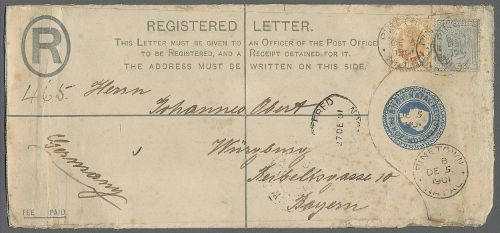 REGISTERED LETTER.
THIS LETTER MUST BE GIVEN TO AN OFFICER OF THE POST OFFICE
TO BE REGISTERED, AND A RECEIPT OBTAINED FOR IT.
THE ADDRESS MUST BE WRITTEN ON THIS SIDE.
R
465.
Herrn
Johannes Obert
Würzburg
Herbelbsgasse 10
Bayern
Germany
27 DE 01
DE 5
1901
PINETOWN
B
DE 5
1901
NATAL
FEE PAID